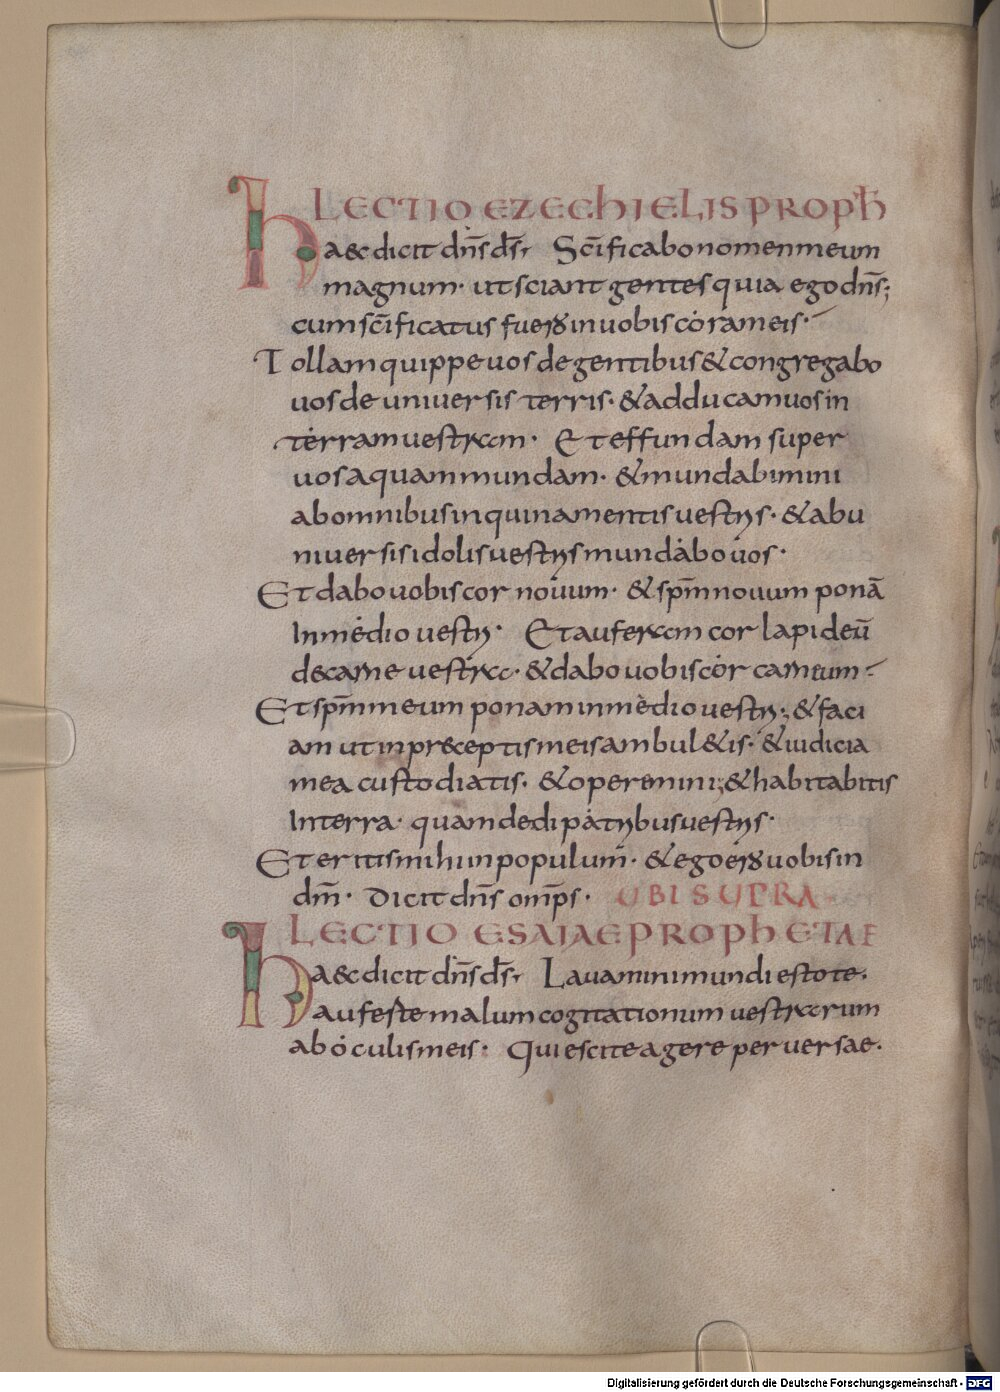 LECTIO EZECHIELIS PROPH̄
Haec dicit dn̄s ds̄. Sc̄ificabo nomen meum
magnum· ut sciant gentes quia ego dn̄s;
cum sc̄ificatus fuero in uobis coram eis·
Tollam quippe uos de gentibus & congregabo
uos de uniuersis terris· & adducam uos in
terram uestram· Et effundam super
uos aquam mundam· & mundabimini
ab omnibus inquinamentis uestris· & ab u
niuersis idolis uestris mundabo uos·
Et dabo uobis cor nouum· & sp̄m nouum ponā
In medio uestri· Et auferam cor lapideū
de carne uestra· & dabo uobis cor carneum·
Et sp̄m meum ponam in medio uestri; & faci
am ut in praeceptis meis ambul&is· & iudicia
mea custodiatis· & operemini; & habitabitis
In terra· quam dedi patribus uestris·
Et eritis mihi in populum· & ego ero uobis in
dm̄· Dicit dn̄s omp̄s· UBI SUPRA
LECTIO ESAIAE PROPHETAE
Haec dicit dn̄s ds̄. Lauamini mundi estote·
aufeste malum cogitationum uestrarum
ab oculis meis· Quiescite agere peruersae·
Digitalisierung gefördert durch die Deutsche Forschungsgemeinschaft - DFG